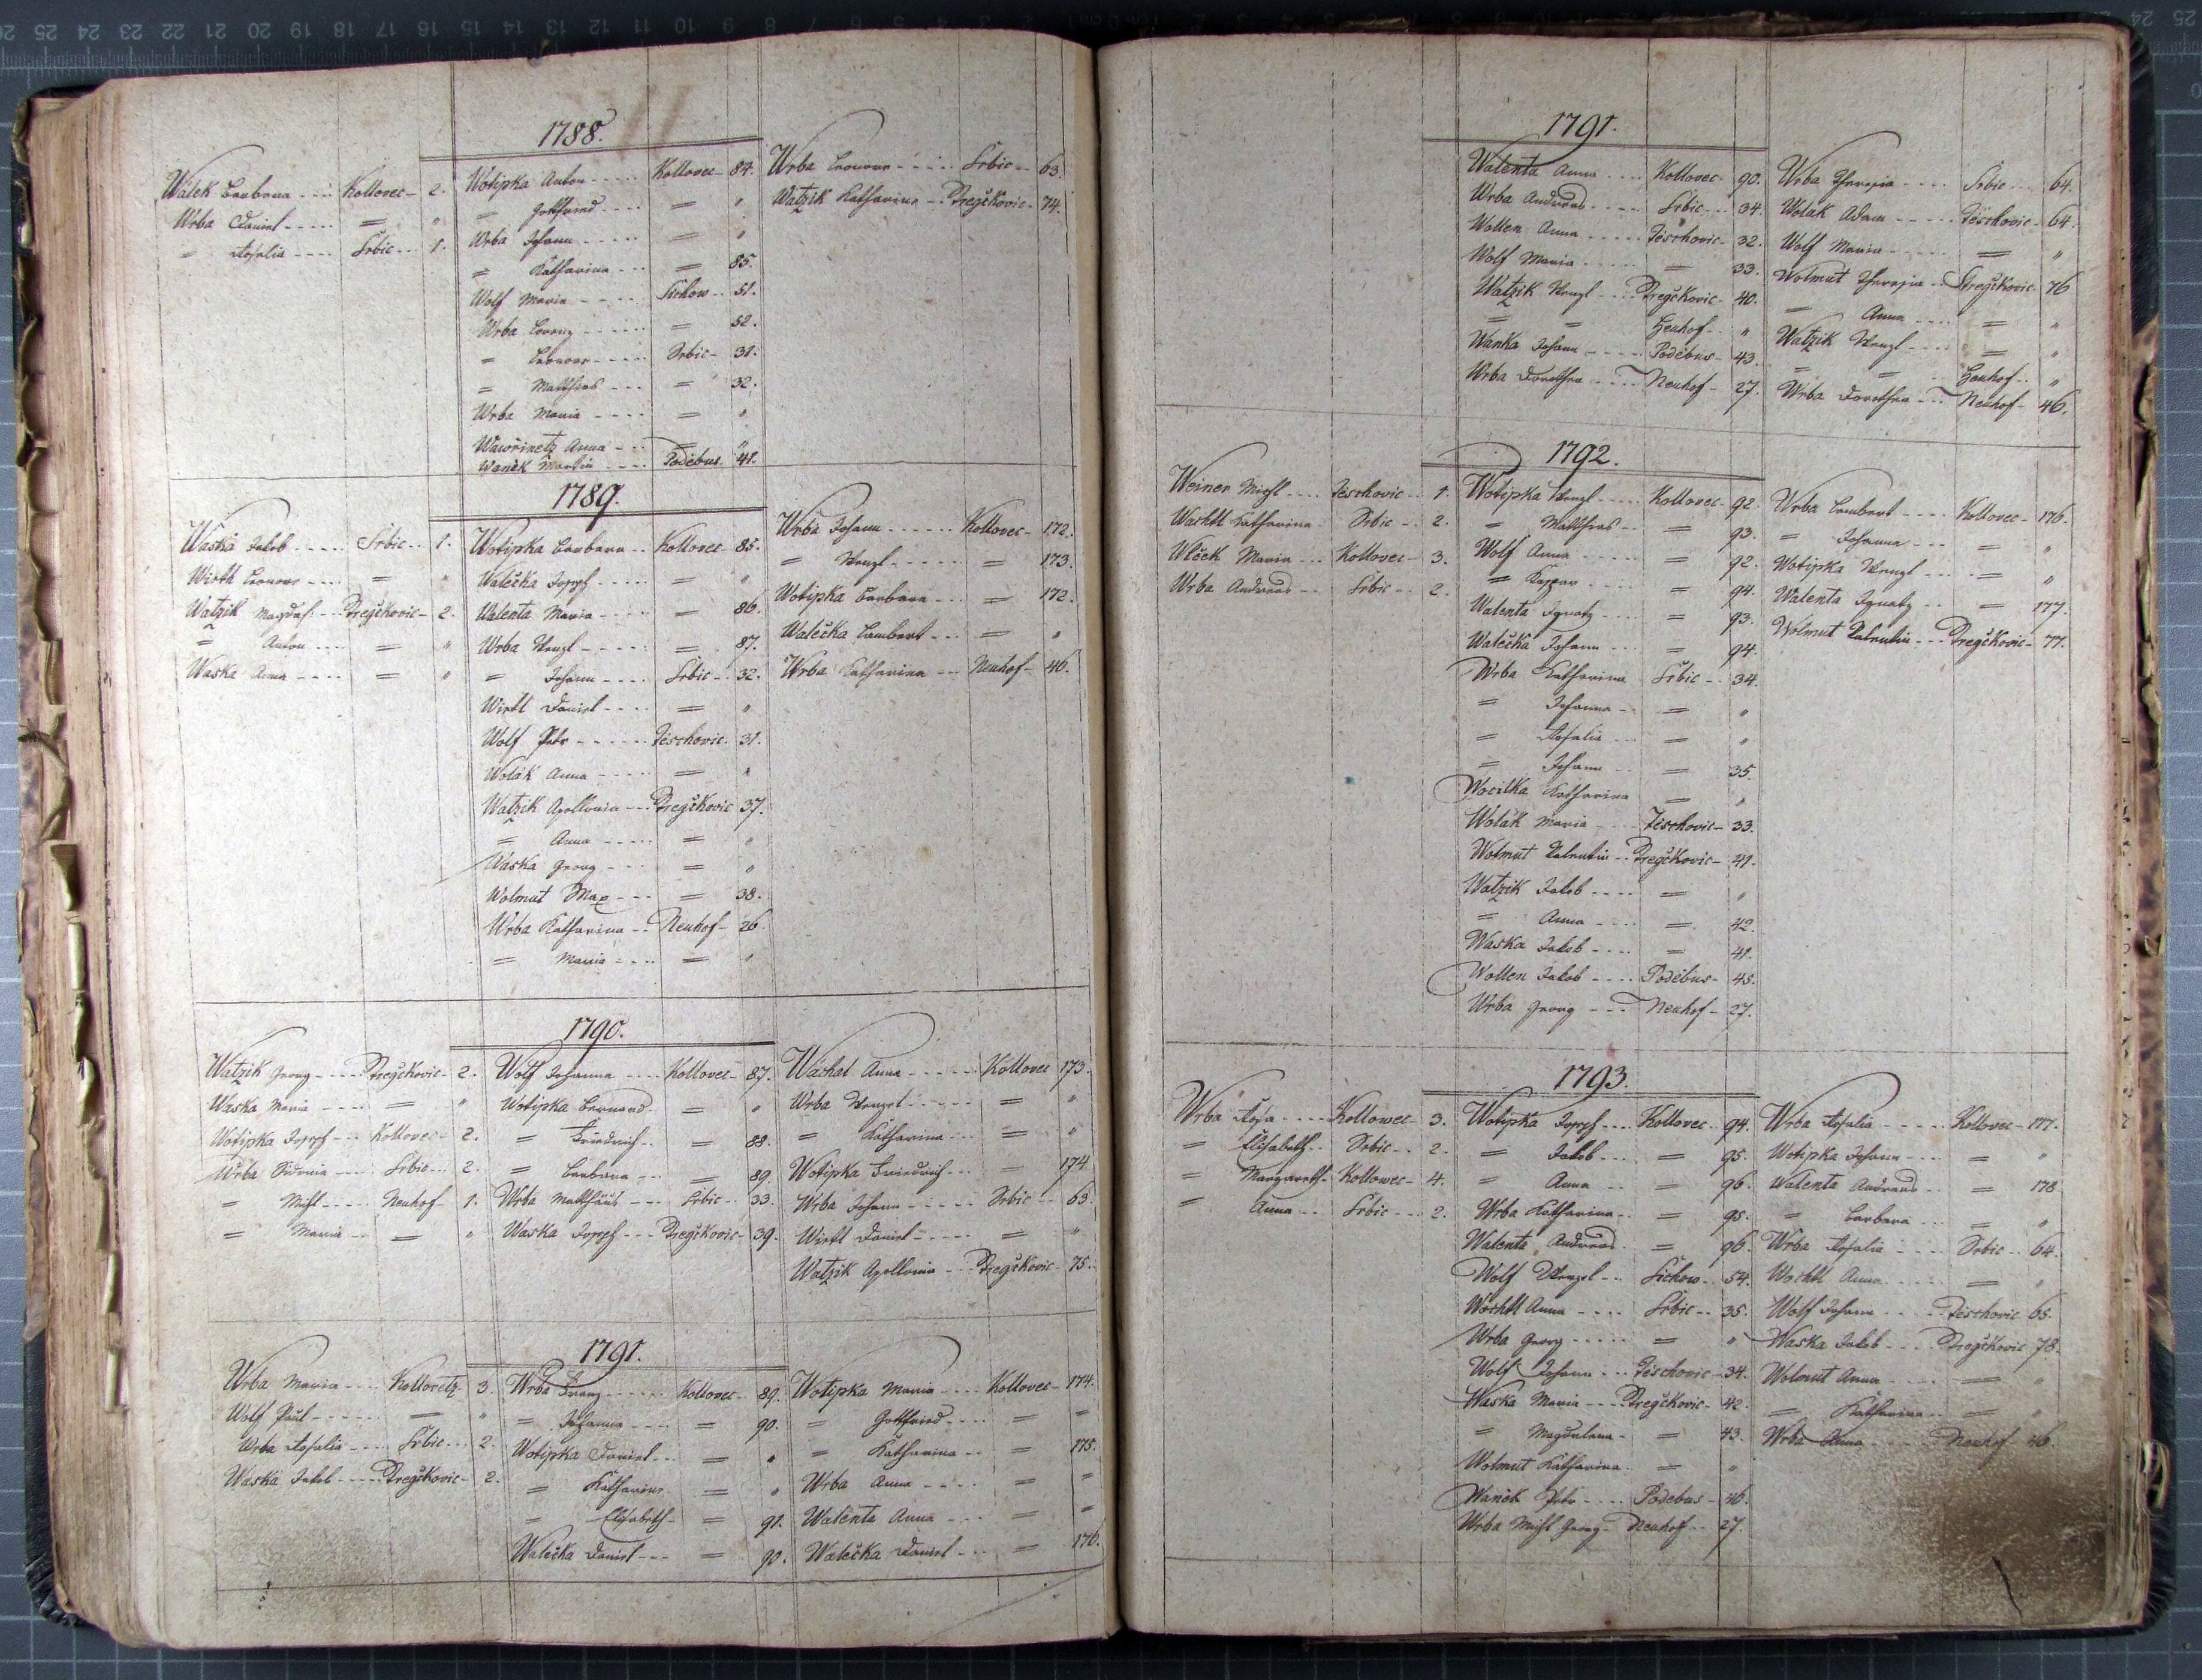 1788.
Wálek Barbara - - - Kollovec - 2.
Wrba Daniel - - - - = "
= Rosalia - - - - Srbic - - 1.
Wotipka Anton - - - - Kollovec - 84.
= Gottfried - - - - = "
Wrba Johann - - - - - = "
= Katharina - - - = 85.
Wolf Maria - - - - Sichow - - 51.
Wrba Lorenz - - - - - = 52.
= Leonore - - - - Srbic - 31.
= Matthias - - - = 32.
Wrba Maria - - - - = "
Wawřinetz Anna - - - = "
Wanĕk Martin - - - Poděbus. 41.
Wrba Leonore - - - - - Srbic - - 63.
Watzik Katharina - - Dregčkovic - 74.
1789.
Waska Jakob - - - - Srbic - - 1.
Wirtl Leonore - - - = "
Watzik Magdal: - - Dregčkovic - 2.
= Anton - - - = "
Waska Anna - - - - = "
Wotipka Barbara - - Kollovec - 85.
Walečka Joseph - - - - = "
Walenta Maria - - - - = 86.
Wrba Wenzl - - - - - = 87.
= Johann - - - - Srbic - 32.
Wirtl Daniel - - - - = "
Wolf Petr - - - - - Těschovic. 31.
Wolák Anna - - - - = "
Watzik Apollonia - - Dregčkovic 37.
= Anna - - - - - = "
Waska Georg - - - = "
Wolmut Max - - - = 38.
Wrba Katharina - - Neuhof - 26
= Maria - - - - = "
Wrba Johann - - - - - Kollovec - 172.
= Wenzl - - - - - = 173.
Wotipka Barbara - - - = 172.
Walečka Lambert - - - = "
Wrba Katharina - - - Neuhof - 46.
1790.
Watzik Georg - - - Dregčkovic - 2.
Waska Maria - - - - = "
Wotipka Joseph - - - Kollovec - 2.
Wrba Sidonia - - - Srbic - - 2.
= Michl - - - - Neuhof - 1.
= Maria - - - = "
Wolf Johanna - - - - Kollovec - 87.
Wotipka Bernard - = "
= Friedrich - - = 88.
= Barbara - - - = 89.
Wrba Matthäus - - - Srbic - - 33.
Waska Joseph - - - Dregčkovic - 39.
Wachal Anna - - - - - Kollovec 173.
Wrba Wenzel - - - - - = "
= Katharina - - - = "
Wotipka Friedrich - - - = 174.
Wrba Johann - - - - - Srbic - - 63.
Wirtl Daniel - - - - = "
Watzik Apollonia - - Dregčkovic - 75.
1791.
Wrba Maria - - - Kollovetz 3.
Wolf Paul - - - - - = "
Wrba Rosalia - - - Srbic - - 2.
Waska Jakob - - - - Dregčkovic - 2.
Wrba Franz - - - - - Kollovec - 89.
= Johanna - - - - = 90.
Wotipka Daniel - - - = "
= Katharina = "
= Elisabeth - = 91.
Walečka Daniel - - - = 90.
Wotipka Maria - - - - Kollovec - 174.
= Gottfried - - - - = =
= Katharina - - = 175.
Wrba Anna - - - - = =
Walenta Anna - - - = =
Walečka Daniel - - = 176.
1791.
Walenta Anna - - - - Kollovec - 90.
Wrba Andreas - - - - - Srbic - - - 34.
Wollen Anna - - - - - Těschovic - 32.
Wolf Maria - - - - - = 33.
Watzik Wenzl - - - Dregčkovic - 40.
= = Heuhof - - "
Wanka Johann - - - - Poděbus - 43.
Wrba Dorothea - - - Neuhof - 27.
Wrba Theresia - - - - Srbic - - - 64.
Wolak Adam - - - - - Těschovic - 64.
Wolf Maria - - - - - = "
Wolmut Theresia - - Dregčkovic - 76
= Anna - - - - = "
Watzik Wenzl - - - - = "
= = Heuhof - - "
Wrba Dorothea - - - Neuhof - 46.
1792.
Weiner Michl - - - - Těschovic - - 1.
Wachtl Katharina Srbic - - 2.
Wlček Maria - - - Kollovec - 3.
Wrba Andreas - - - Srbic - - 2.
Wotipka Wenzl - - - - Kollovec - 92.
= Matthias - - = 93.
Wolf Anna - - - - - = 92.
= Kaspar - - - - = 94.
Walenta Ignatz - - - - = 93.
Walečka Johann - - - = 94.
Wrba Katharina Srbic - - 34.
= Johanna - - = "
= Rosalia - - - = "
= Johann - - = 35.
Wocilka Katharina = "
Wolák Maria - - - - Těschovic - 33.
Wolmut Valentin - - Dregčkovic - 41.
Watzik Jakob - - - - = "
= Anna - - - - = 42.
Waska Jakob - - - - = 41.
Wollen Jakob - - - - Poděbus - 45.
Wrba Georg - - - Neuhof - 27.
Wrba Lambert - - - - Kollovec - 176.
= Johanna - - - = "
Wotipka Wenzl - - - - = "
Walenta Ignatz - - = 177.
Wolmut Valentin - - - Dregčkovic - 77.
1793.
Wrba Rosa - - - - Kollowec - 3.
= Elisabeth - - Srbic - - 2.
= Margareth - Kollowec - 4.
= Anna - - Srbic - - - 2.
Wotipka Joseph - - - - Kollovec 94.
= Jakob - - - = 95.
= Anna - - = 96.
Wrba Katharina - - = 95.
Walenta Andreas = 96.
Wolf Wenzel - - Sichow - - 54.
Wochtl Anna - - - - Srbic - - 35.
Wrba Georg - - - - - = "
Wolf Johann - - - Těschovic - 34.
Waska Maria - - - Dregčkovic - 42.
= Magdalena - = 43.
Wolmut Katharina = "
Wanĕk Petr - - - - Poděbus - 46.
Wrba Michl Georg - Neuhof - - 27.
Wrba Rosalia - - - - - Kollovec - 177.
Wotipka Johann - - - - = "
Walenta Andreas - - = 178.
= Barbara - - - = "
Wrba Rosalia - - - - Srbic - - 64.
Wochtl Anna - - - - = "
Wolf Johann - - - - Těschovic 65.
Waska Jakob - - - Dregčkovic 78.
Wolmut Anna - - - - = "
= Katharina - - = "
Wrba Anna - - - - Neuhof 46.